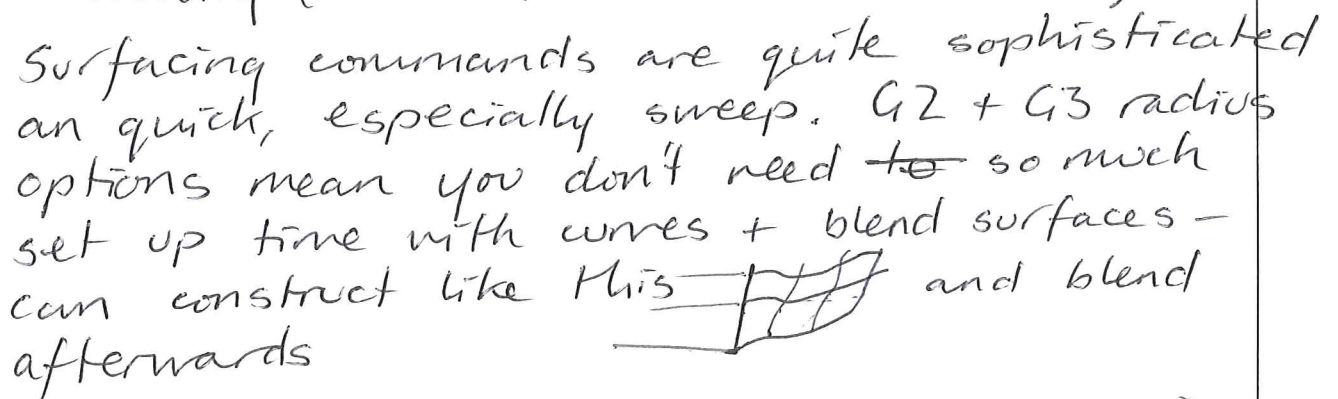 Surfacing commands are quite sophisticated
an quick, especially sweep. G2 + G3 radius
options mean you don't need to so much
set up time with curves + blend surfaces -
can construct like this and blend
afterwards